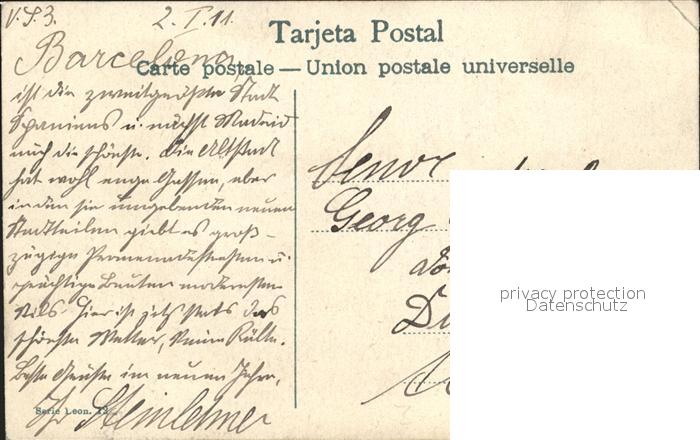 V. S. 3. 2. I. 11.
Tarjeta Postal
Barcelona,
Carte postale — Union postale universelle
ist die zweitgrößte Stadt
Spaniens u. nächst Madrid
auch die schönste. Die Altstadt
hat wohl enge Gassen, aber
in den sie umgebenden neuen
Stadtteilen giebt es groß-
zügige Promenadestraßen u.
prächtige Bauten modernsten
Stils. Hier ist jetzt stets das
schönste Wetter, keine Kälte.
Beste Grüße im neuen Jahre,
Ihr Steinlehner
Serie Leon.
Senor
Georg
privacy protection
Datenschutz